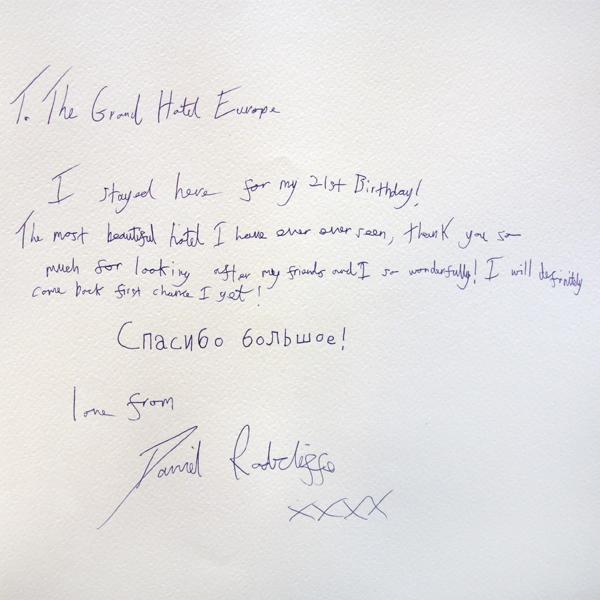 To The Grand Hotel Europe
I stayed here for my 21st Birthday!
The most beautiful hotel I have ever ever seen, thank you so
much for looking after my friends and I so wonderfully! I will definitely
come back first chance I get!
Спасибо большое!
love from
Daniel Radcliffe
xxxx